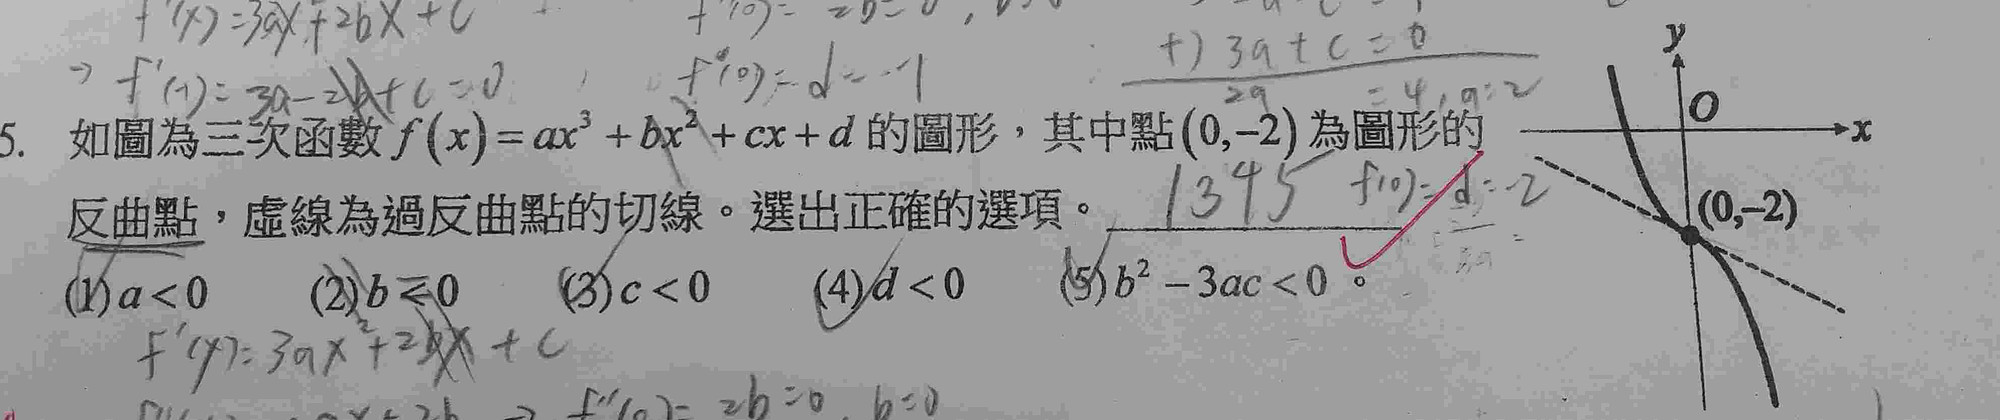 f'(x)=3ax²+2bx+c
⇒ f'(-1)=3a-2b+c=0
f''(0)=d=-1
+) 3a+c=0
2a =4, a=2
5. 如圖為三次函數 f(x)=ax³+bx²+cx+d 的圖形,其中點(0,−2)為圖形的
反曲點,虛線為過反曲點的切線。選出正確的選項。 1345 f(0)=d=-2
(1) a<0 (2) b<0 (3) c<0 (4) d<0 (5) b²−3ac<0。
f'(x)=3ax²+2bx+c
f''(0)=2b=0, b=0
y
O
x
(0,−2)